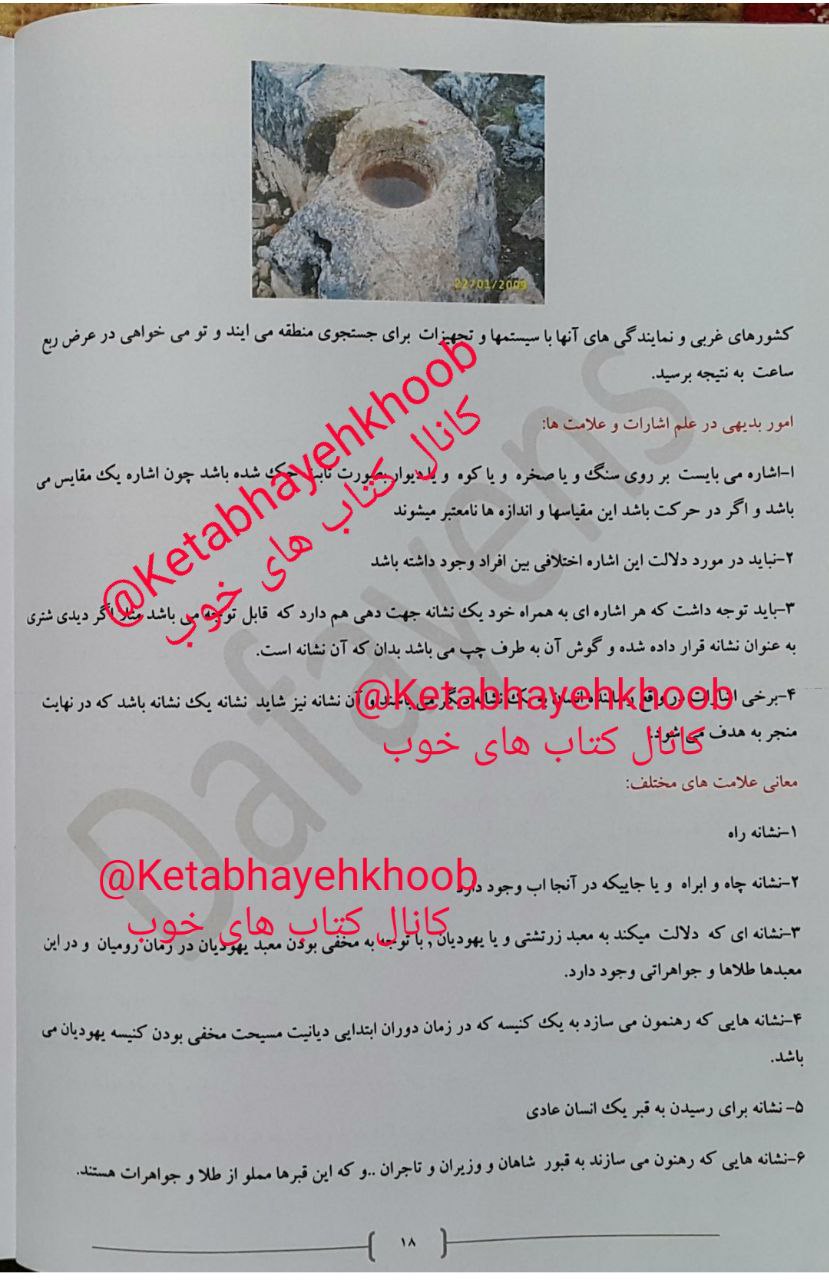 22/01/2009
کشورهای غربی و نمایندگی های آنها با سیستمها و تجهیزات برای جستجوی منطقه می ایند و تو می خواهی در عرض ربع
ساعت به نتیجه برسید.
امور بدیهی در علم اشارات و علامت ها:
۱-اشاره می بایست بر روی سنگ و یا صخره و یا کوه و یا دیوار بصورت ثابت حک شده باشد چون اشاره یک مقایس می
باشد و اگر در حرکت باشد این مقیاسها و اندازه ها نامعتبر میشوند
۲-نباید در مورد دلالت این اشاره اختلافی بین افراد وجود داشته باشد
۳-باید توجه داشت که هر اشاره ای به همراه خود یک نشانه جهت دهی هم دارد که قابل توجه می باشد مثلا اگر دیدی شتری
به عنوان نشانه قرار داده شده و گوش آن به طرف چپ می باشد بدان که آن نشانه است.
۴-برخی اشارات در واقع انسان به یک نشانه دیگر می باشند و آن نشانه نیز شاید نشانه یک نشانه باشد که در نهایت
منجر به هدف می شود.
معانی علامت های مختلف:
۱-نشانه راه
۲-نشانه چاه و ابراه و یا جاییکه در آنجا اب وجود دارد
۳-نشانه ای که دلالت میکند به معبد زرتشتی و یا یهودیان , با توجه به مخفی بودن معبد یهودیان در زمان رومیان و در این
معبدها طلاها و جواهراتی وجود دارد.
۴-نشانه هایی که رهنمون می سازد به یک کنیسه که در زمان دوران ابتدایی دیانیت مسیحت مخفی بودن کنیسه یهودیان می
باشد.
۵- نشانه برای رسیدن به قبر یک انسان عادی
۶-نشانه هایی که رهنون می سازند به قبور شاهان و وزیران و تاجران ..و که این قبرها مملو از طلا و جواهرات هستند.
۱۸
Dafayens
@Ketabhayehkhoob
کانال کتاب های خوب
@Ketabhayehkhoob
کانال کتاب های خوب
@Ketabhayehkhoob
کانال کتاب های خوب